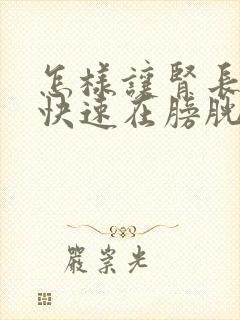 怎樣讓腎長
快速在膀胱
嚴崇光